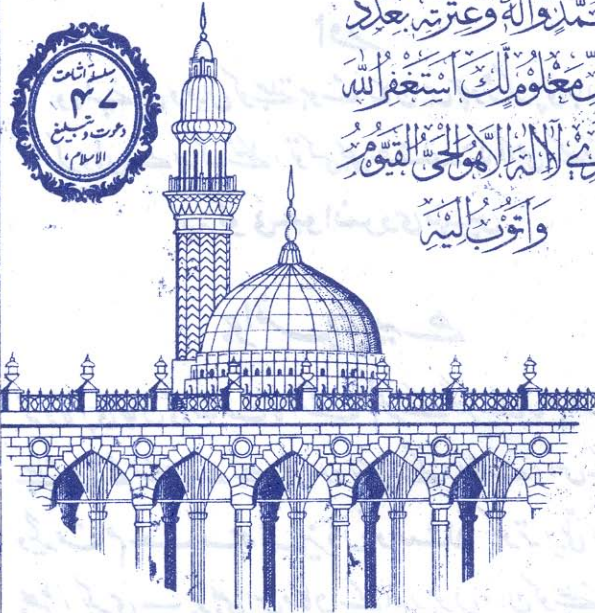 سلسلہ اشاعت
۴۷
دعوت و تبلیغ
الاسلام،
وَآلِهٖ وَعِتْرَتِهٖ بِعَدَدِ
مَعْلُوْمٍ لَّكَ اَسْتَغْفِرُ اللّٰهَ
لَآ اِلٰهَ اِلَّا هُوَ الْحَيُّ الْقَيُّوْمُ
وَاَتُوْبُ اِلَيْهِ